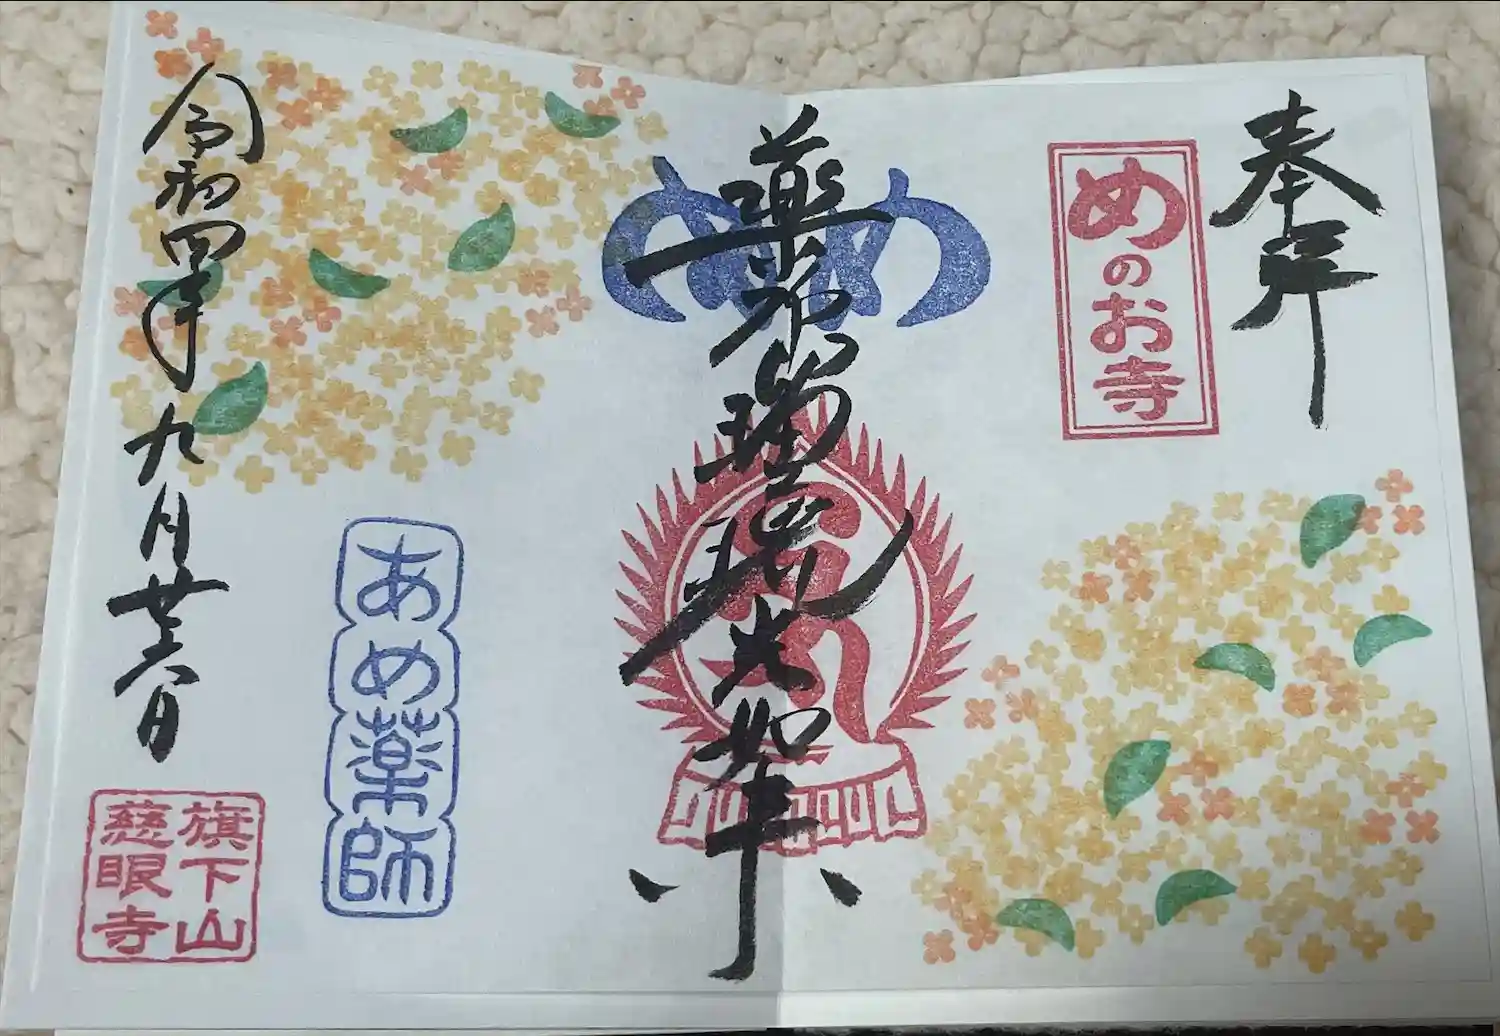 奉拝
めのお寺
薬師瑠璃光如来
め め
あめ薬師
令和四年九月廿六日
旗下山
慈眼寺